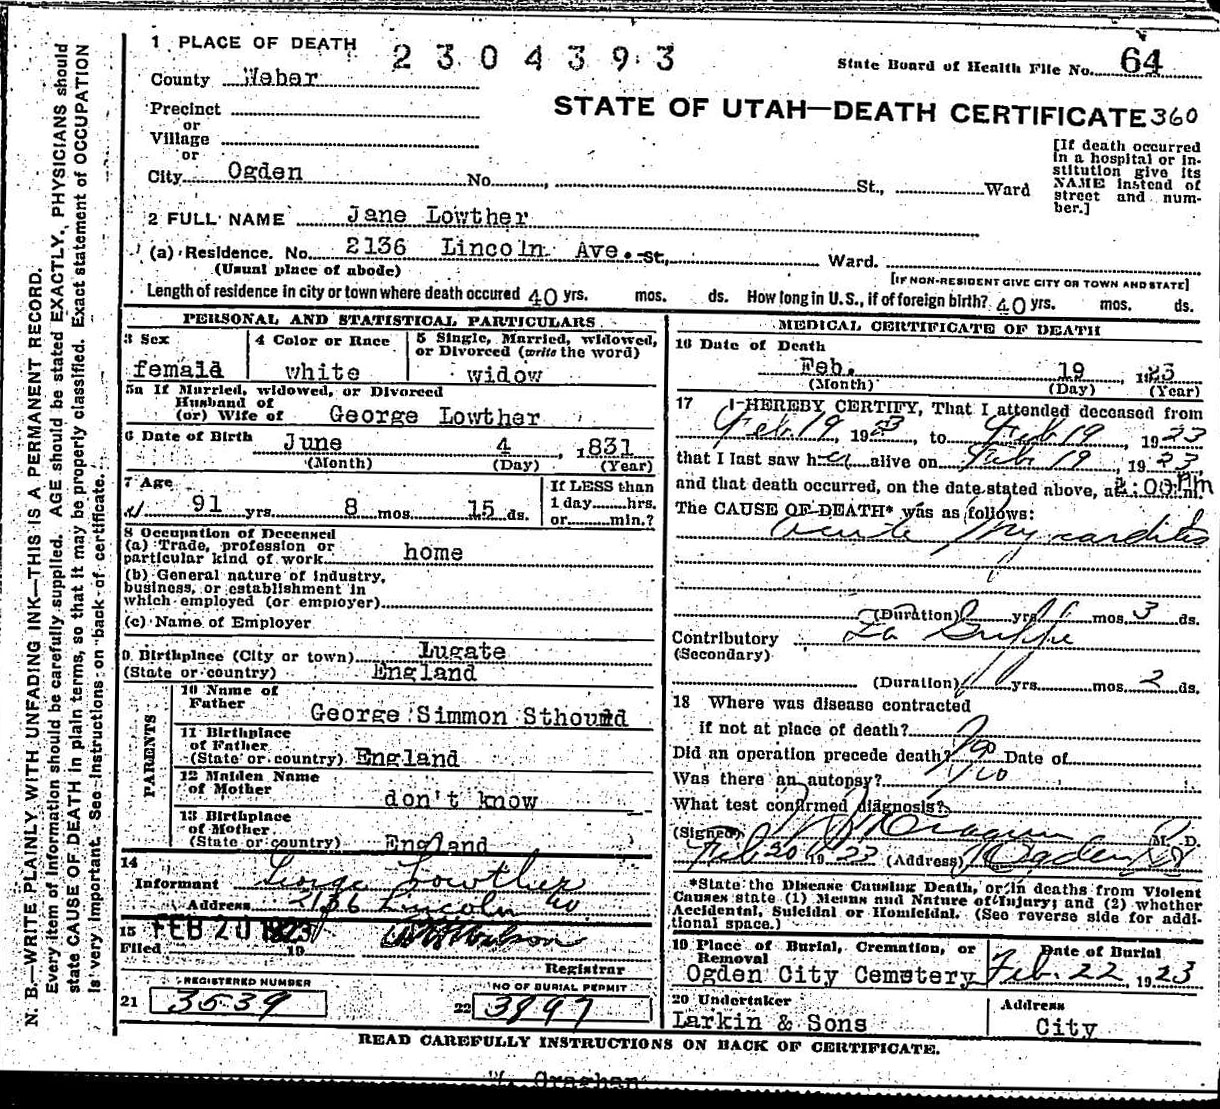 1 PLACE OF DEATH 2304393 State Board of Health File No. 64
County Weber
STATE OF UTAH—DEATH CERTIFICATE 360
Precinct
or
Village
or
City Ogden No. , St., Ward
[If death occurred
in a hospital or in-
stitution give its
NAME instead of
street and num-
ber.]
2 FULL NAME Jane Lowther
(a) Residence. No. 2136 Lincoln Ave. St., Ward.
(Usual place of abode) [IF NON-RESIDENT GIVE CITY OR TOWN AND STATE]
Length of residence in city or town where death occured 40 yrs. mos. ds. How long in U.S., if of foreign birth? 40 yrs. mos. ds.
PERSONAL AND STATISTICAL PARTICULARS
3 Sex
female
4 Color or Race
white
5 Single, Married, widowed,
or Divorced (write the word)
widow
5a If Married, widowed, or Divorced
Husband of
(or) Wife of George Lowther
6 Date of Birth June 4, 1831
(Month) (Day) (Year)
7 Age
91 yrs. 8 mos. 15 ds.
If LESS than
1 day hrs.
or min.?
8 Occupation of Deceased
(a) Trade, profession or
particular kind of work home
(b) General nature of industry,
business, or establishment in
which employed (or employer)
(c) Name of Employer
9 Birthplace (City or town) Lugate
(State or country) England
PARENTS
10 Name of
Father
George Simmon
11 Birthplace
of Father
(State or country) England
12 Maiden Name
of Mother
don't know
13 Birthplace
of Mother
(State or country) England
14
Informant George Lowther
Address 2136 Lincoln av
15 FEB 20 1923
Filed 19 Wilson
Registrar
REGISTERED NUMBER
21 3539
NO OF BURIAL PERMIT
22 3897
MEDICAL CERTIFICATE OF DEATH
16 Date of Death
Feb. 19, 1923
(Month) (Day) (Year)
17 I HEREBY CERTIFY, That I attended deceased from
Feb. 19, 1923, to Feb 19, 1923
that I last saw her alive on Feb. 19, 1923,
and that death occurred, on the date stated above, at :00 Pm m.
The CAUSE OF DEATH* was as follows:
acute Myocarditis
(Duration) yrs. mos. 3 ds.
Contributory La Grippe
(Secondary)
(Duration) yrs. mos. 2 ds.
18 Where was disease contracted
if not at place of death?
Did an operation precede death? no Date of
Was there an autopsy? no
What test confirmed diagnosis?
(Signed) M. D.
Feb 20 1923 (Address) Ogden
*State the Disease Causing Death, or in deaths from Violent
Causes state (1) Means and Nature of Injury; and (2) whether
Accidental, Suicidal or Homicidal. (See reverse side for addi-
tional space.)
19 Place of Burial, Cremation, or
Removal
Ogden City Cemetery
Date of Burial
Feb. 22, 1923
20 Undertaker
Larkin & Sons
Address
City
READ CAREFULLY INSTRUCTIONS ON BACK OF CERTIFICATE.
N. B.—WRITE PLAINLY WITH UNFADING INK—THIS IS A PERMANENT RECORD.
Every item of information should be carefully supplied. AGE should be stated EXACTLY, PHYSICIANS should
state CAUSE OF DEATH in plain terms, so that it may be properly classified. Exact statement of OCCUPATION
is very important. See instructions on back of certificate.